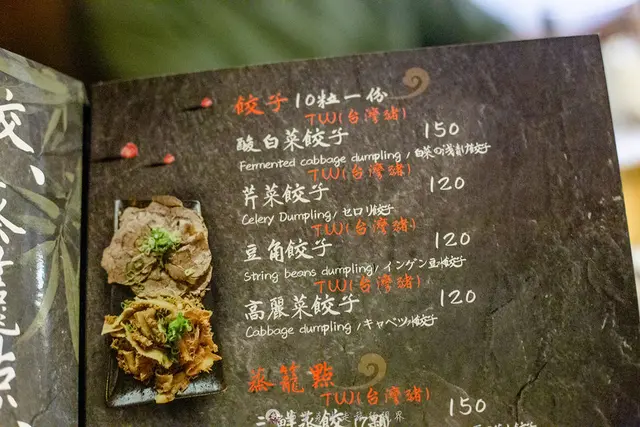 餃子 10粒一份
TW(台灣豬)
酸白菜餃子 150
Fermented cabbage dumpling / 白菜の浅漬け餃子
TW(台灣豬)
芹菜餃子 120
Celery Dumpling / セロリ餃子
TW(台灣豬)
豆角餃子 120
String beans dumpling / インゲン豆餃子
TW(台灣豬)
高麗菜餃子 120
Cabbage dumpling / キャベツ餃子
蒸籠點
TW(台灣豬)
三鮮蒸餃 150